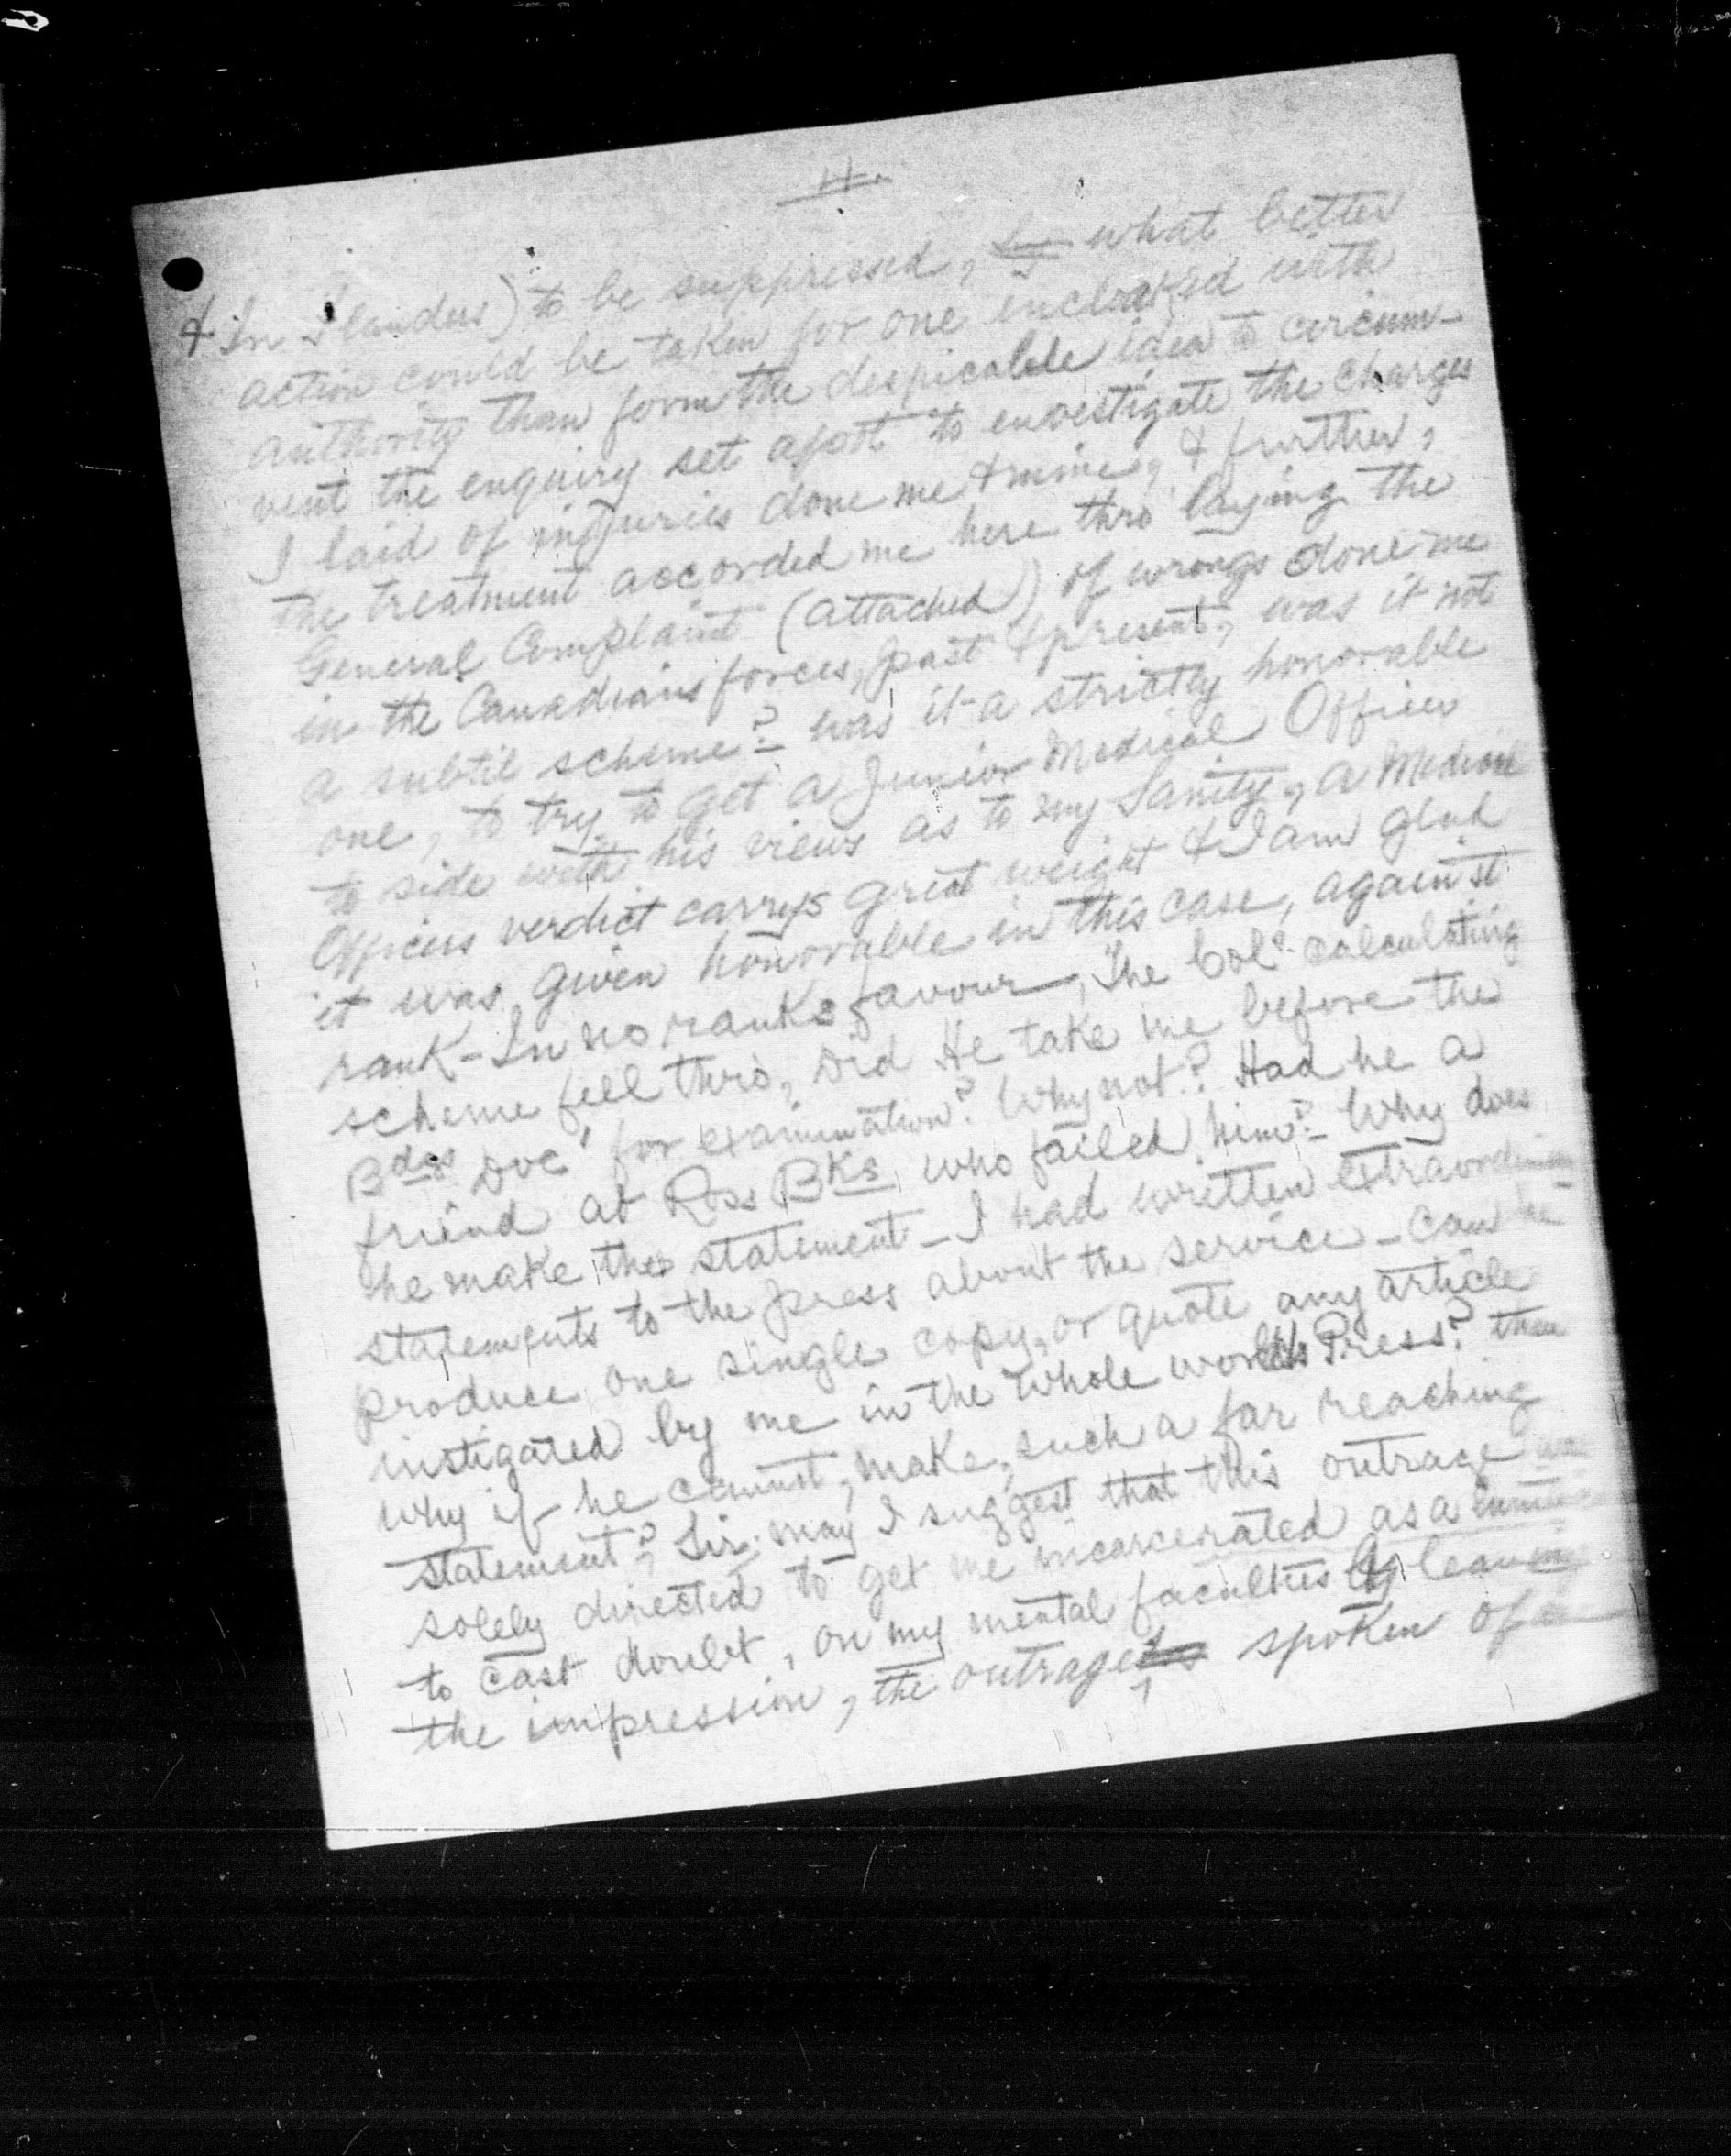 4.
& In Flanders) to be suppressed, what better
action could be taken for one encloaked with
authority than form the despicable idea to circum-
vent the enquiry set apart to envestigate the charges
I laid of injuries done me & mine, & further,
the treatment accorded me here thro' laying the
General Complaint (attached) of wrongs done me
in the Canadians forces, past & present, was it not
a subtil scheme? was it a strictly honorable
one, to try to get a Junior Medical Officer
to side with his views as to my Sanity, a Medical
Officers verdict carrys great weight & I am glad
it was given honorable in this case, against
rank - In no ranks favour, The Col's calculating
scheme fell thro, Did He take me before the
Bdes Doc' for examination? Why not? Had he a
friend at Ross Bks who failed him? Why does
he make the statement - I had written extraordinary
statements to the press about the service - Can he
produce one single copy, or quote any article
instigated by me in the whole worlds Press? then
why if he cannot, make, such a far reaching
statement? Sir, may I suggest that this outrage was
solely directed to get me incarcerated as a
to cast doubt, on my mental faculties by leaving
the impression, the outrages spoken of